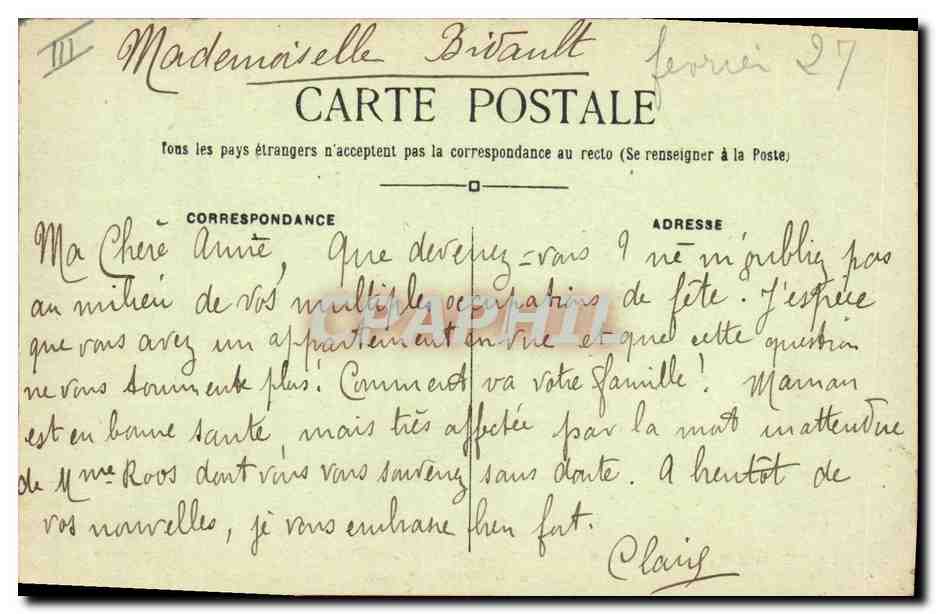 III
Mademoiselle Bidault
fevrier 27
CARTE POSTALE
Tous les pays étrangers n'acceptent pas la correspondance au recto (Se renseigner à la Poste)
CORRESPONDANCE
ADRESSE
Ma Chère Annie, Que devenez-vous ? ne m'oubliez pas
au milieu de vos multiples occupations de fête. J'espère
que vous avez un appartement en vue et que cette question
ne vous tourmente plus! Comment va votre famille! Maman
est en bonne santé, mais très affectée par la mort inattendue
de Mme Roos dont vous vous souvenez sans doute. A bientôt de
vos nouvelles, je vous embrasse bien fort.
CPAPHIL